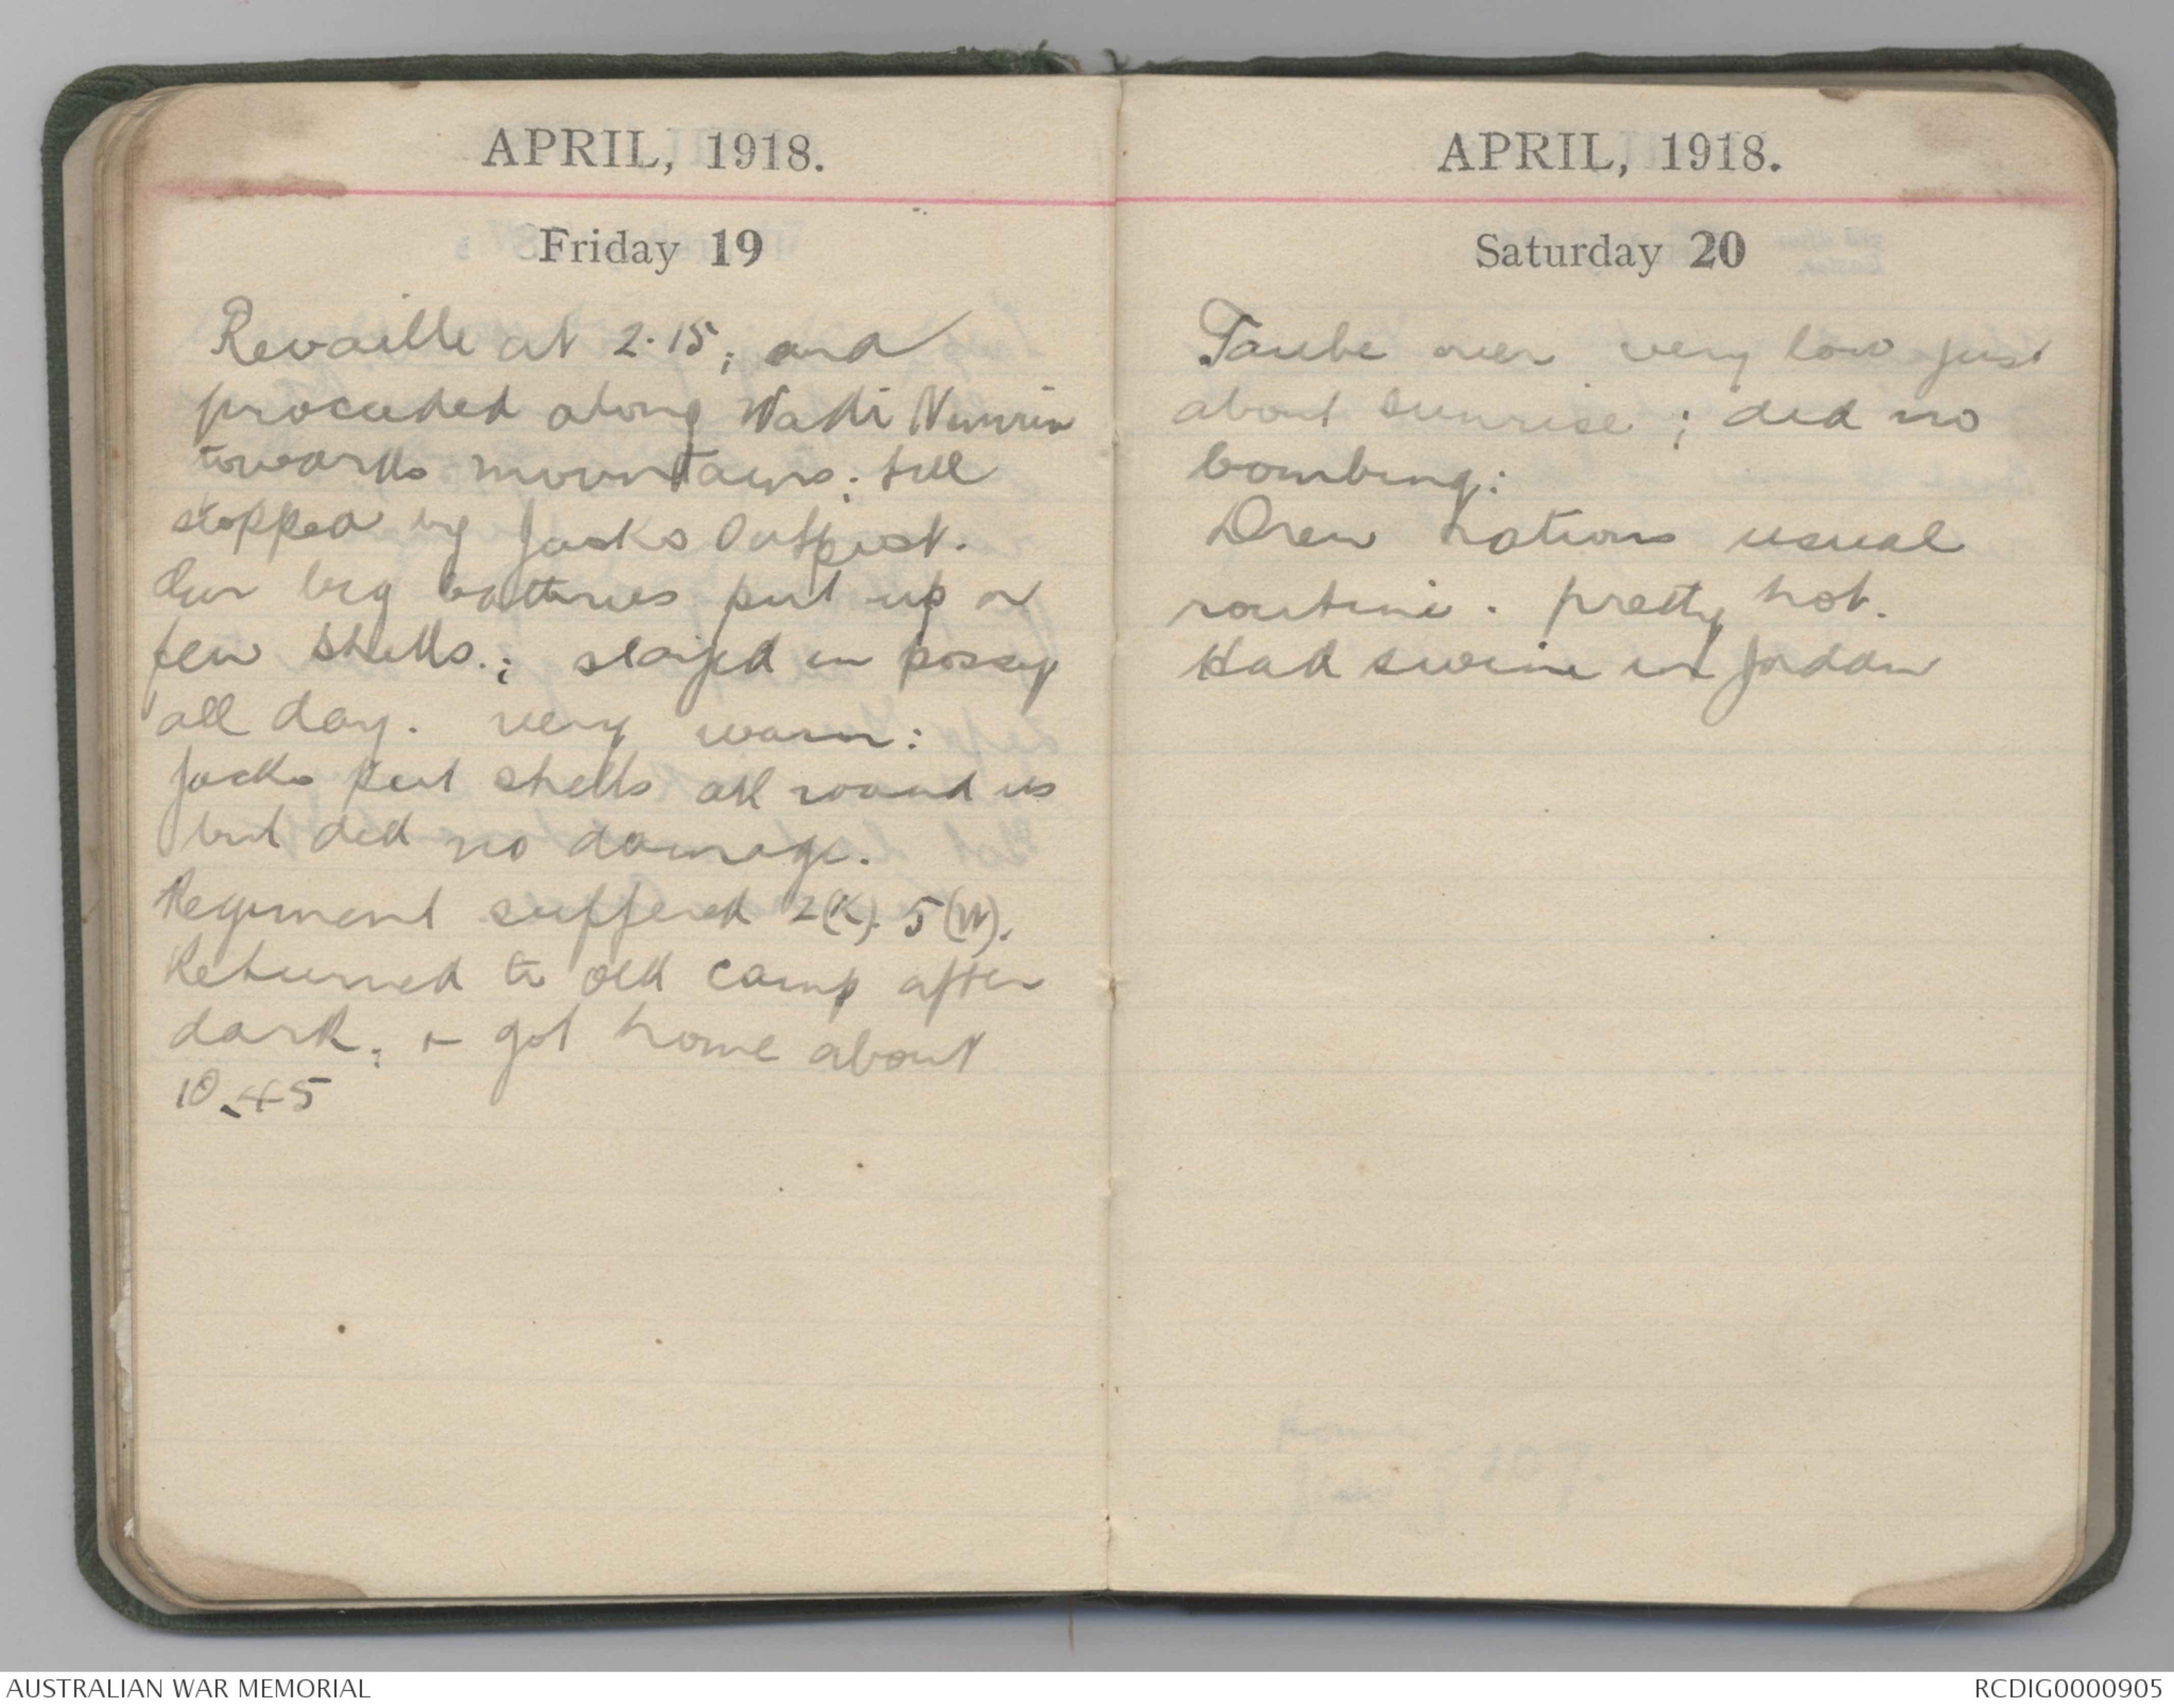 APRIL, 1918.
Friday 19
Revaille at 2.15; and
proceeded along Wadi Nimrin
towards mountains; till
stopped by Jacko Outpost.
Our big batteries put up a
few shells.; stayed in possy
all day. very warm:
Jacko put shells all round us
but did no damage.
Regiment suffered 2(K). 5(W).
Returned to old camp after
dark; + got home about
10.45
APRIL, 1918.
Saturday 20
Taube over very low just
about sunrise; did no
bombing:
Drew rations usual
routine. pretty hot.
Had swim in Jordan
AUSTRALIAN WAR MEMORIAL
RCDIG0000905